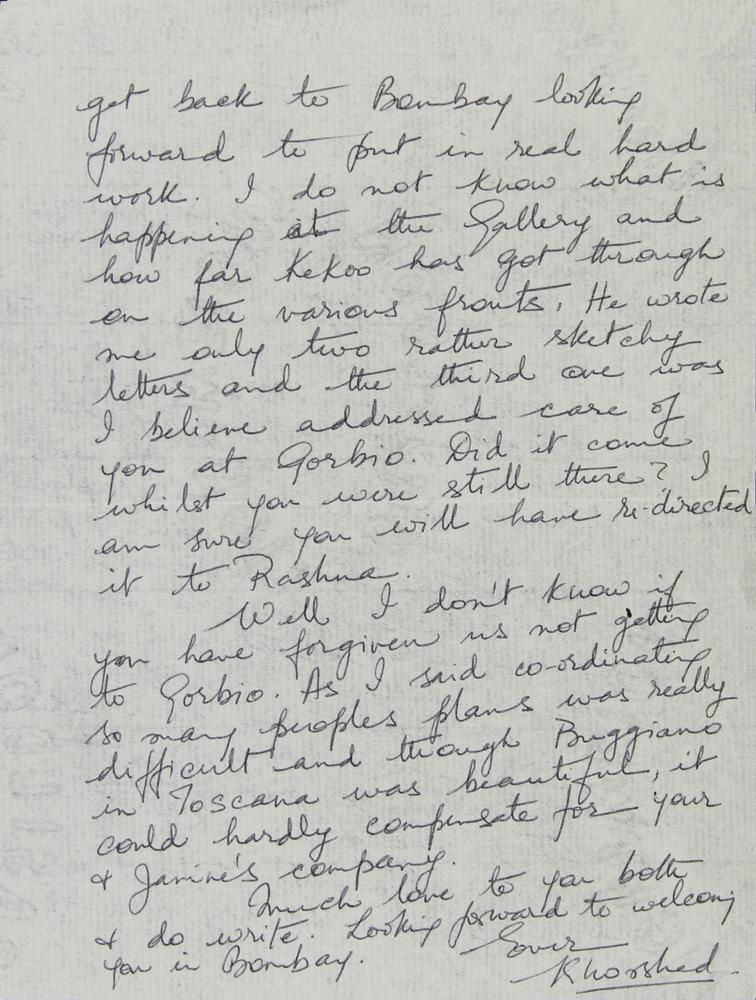 get back to Bombay looking
forward to put in real hard
work. I do not know what is
happening at the Gallery and
how far Kekoo has got through
on the various fronts. He wrote
me only two rather sketchy
letters and the third one was
I believe addressed care of
you at Gorbio. Did it come
whilst you were still there? I
am sure you will have re-directed
it to Rashna.
Well I don't know if
you have forgiven us not getting
to Gorbio. As I said co-ordinating
so many peoples plans was really
difficult and though Buggiano
in Toscana was beautiful, it
could hardly compensate for your
& Janine's company.
Much love to you both
& do write. Looking forward to welcoming
you in Bombay. Ever
Khorshed